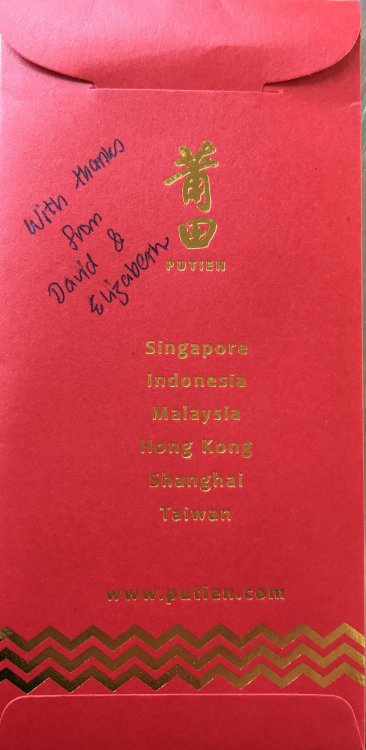 With thanks
from
David &
Elizabeth
莆
田
PUTIEN
Singapore
Indonesia
Malaysia
Hong Kong
Shanghai
Taiwan
www.putien.com